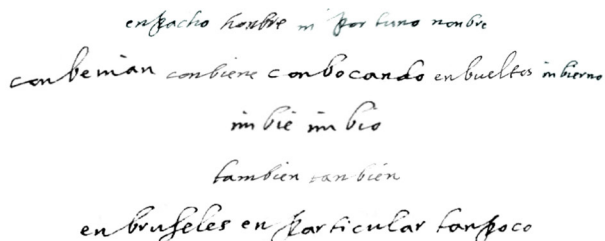 enpacho honbre in portuno nonbre
conbenian conbiene conbocando enbueltos inbierno
imbié imbio
tambien tanbién
en bruseles en particular tanpoco